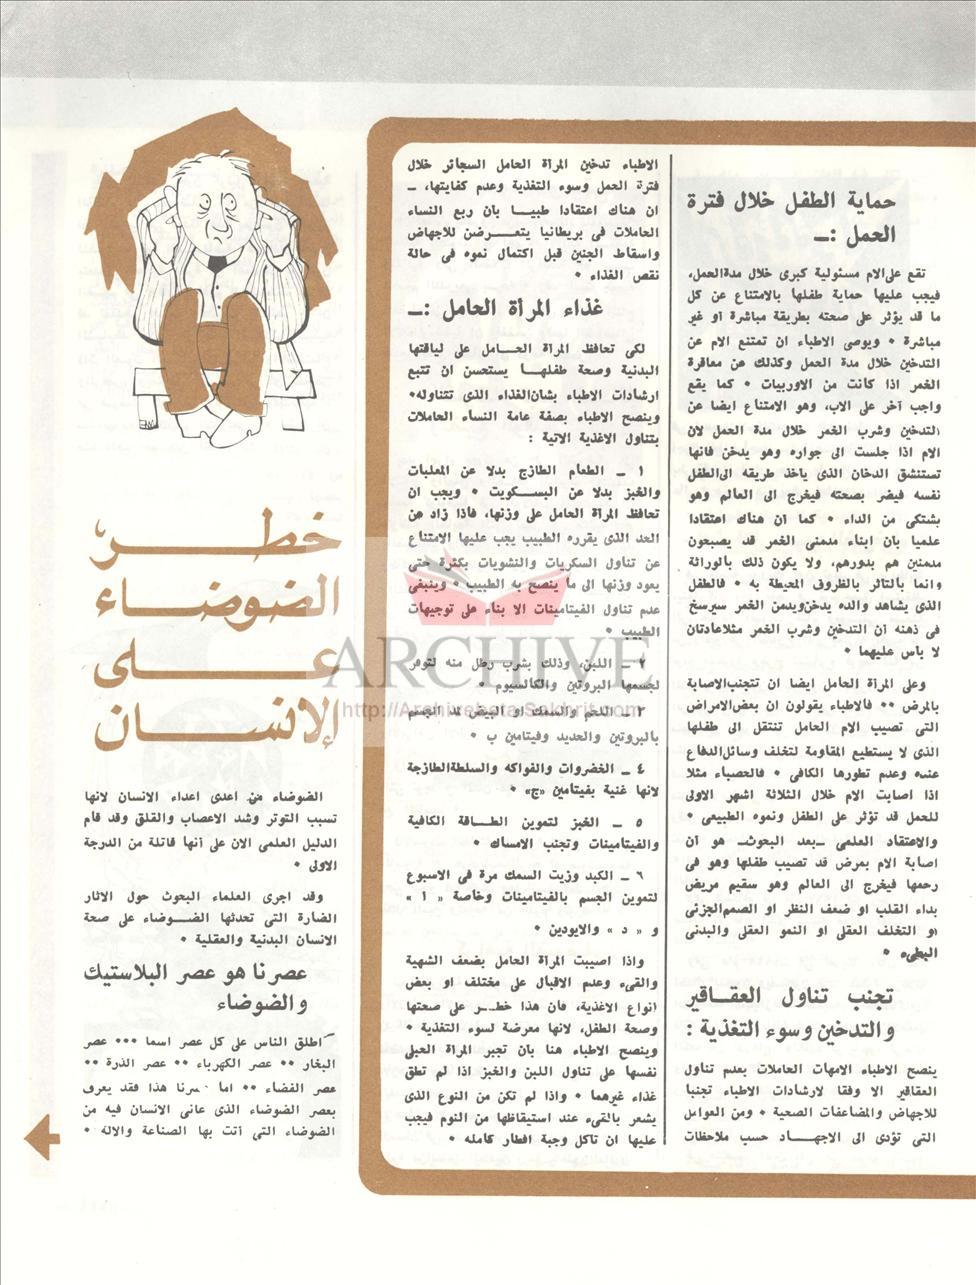 حماية الطفل خلال فترة
الحمل :ـ
تقع على الام مسئولية كبرى خلال مدة الحمل،
فيجب عليها حماية طفلها بالامتناع عن كل
ما قد يؤثر على صحته بطريقة مباشرة او غير
مباشرة • ويوصى الاطباء ان تمتنع الام عن
التدخين خلال مدة الحمل وكذلك عن معاقرة
الخمر اذا كانت من الاوربيات • كما يقع
واجب آخر على الاب، وهو الامتناع ايضا عن
التدخين وشرب الخمر خلال مدة الحمل لان
الام اذا جلست الى جواره وهو يدخن فانها
تستنشق الدخان الذى ياخذ طريقه الى الطفل
نفسه فيضر بصحته فيخرج الى العالم وهو
يشتكى من الداء • كما ان هناك اعتقادا
علميا بان ابناء مدمنى الخمر قد يصبحون
مدمنين هم بدورهم، ولا يكون ذلك بالوراثة
وانما بالتاثر بالظروف المحيطة به • فالطفل
الذى يشاهد والده يدخن ويدمن الخمر سيرسخ
فى ذهنه أن التدخين وشرب الخمر مثلا عادتان
لا باس عليهما •
وعلى المرأة الحامل ايضا ان تتجنب الاصابة
بالمرض •• فالاطباء يقولون ان بعض الامراض
التى تصيب الام الحامل تنتقل الى طفلها
الذى لا يستطيع المقاومة لتخلف وسائل الدفاع
عنده وعدم تطورها الكافى • فالحصباء مثلا
اذا اصابت الام خلال الثلاثة اشهر الاولى
للحمل قد تؤثر على الطفل ونموه الطبيعى •
والاعتقاد العلمى ـ بعد البحوث ـ هو أن
اصابة الام بمرض قد تصيب طفلها وهو فى
رحمها فيخرج الى العالم وهو سقيم مريض
بداء القلب او ضعف النظر او الصمم الجزئى
او التخلف العقلى او النمو العقلى والبدنى
البطىء •
تجنب تناول العقـاقير
والتدخين وسوء التغذية :
ينصح الاطباء الامهات الحاملات بعدم تناول
العقاقير الا وفقا لارشادات الاطباء تجنبا
للاجهاض والمضاعفات الصحية • ومن العوامل
التى تؤدى الى الاجهــاد حسب ملاحظات
الاطباء تدخين المرأة الحامل السجائر خلال
فترة الحمل وسوء التغذية وعدم كفايتها، ـ
ان هناك اعتقادا طبيـا بان ربع النساء
الحاملات فى بريطانيا يتعـــرضن للاجهاض
واسقاط الجنين قبل اكتمال نموه فى حالة
نقص الغذاء •
غذاء المرأة الحامل :ـ
لكى تحافظ المرأة الحــامل على لياقتها
البدنية وصحة طفلهــا يستحسن ان تتبع
ارشادات الاطباء بشأن الغذاء الذى تتناوله•
وينصح الاطباء بصفة عامة النساء الحاملات
بتناول الاغذية الاتية :
١ ـ الطعام الطازج بدلا عن المعلبات
والخبز بدلا عن البســكويت • ويجب ان
تحافظ المرأة الحامل على وزنها، فأذا زاد عن
الحد الذى يقرره الطبيب يجب عليها الامتناع
عن تناول السكريات والنشويات بكثرة حتى
يعود وزنها الى ما ينصح به الطبيب • وينبغى
عدم تناول الفيتامينات الا بناء على توجيهات
الطبيب •
٢ ـ اللبن، وذلك بشرب رطل منه لتوفر
لجسمها البروتين والكالسيوم
٣ ـ اللحم والسمك او البيض لمد الجسم
بالبروتين والحديد وفيتامين ب •
٤ ـ الخضروات والفواكه والسلطة الطازجة
لانها غنية بفيتامين «ج» •
٥ ـ الخبز لتموين الطــاقة الكافية
والفيتامينات وتجنب الامساك •
٦ ـ الكبد وزيت السمك مرة فى الاسبوع
لتموين الجسم بالفيتامينات وخاصة « ا »
و « د » والايودين •
واذا اصيبت المرأة الحامل بضعف الشهية
والقىء وعدم الاقبال على مختلف او بعض
انواع الاغذية، فان هذا خطـر على صحتها
وصحة الطفل، لانها معرضة لسوء التغذية •
وينصح الاطباء هنا بان تجبر المرأة الحبلى
نفسها على تناول اللبن والخبز اذا لم تطق
غذاء غيرهما • واذا لم تكن من النوع الذى
يشعر بالقىء عند استيقاظها من النوم فيجب
عليها ان تاكل وجبة افطار كامله •
خطــر
الضوضاء
علــى
الإنسان
الضوضاء من اعدى اعداء الانسان لانها
تسبب التوتر وشد الاعصاب والقلق وقد قام
الدليل العلمى الان على أنها قاتلة من الدرجة
الاولى •
وقد اجرى العلماء البحوث حول الاثار
الضارة التى تحدثها الضــوضاء على صحة
الانسان البدنية والعقلية •
عصرنا هو عصر البلاستيك
والضوضاء
اطلق الناس على كل عصر اسما ••• عصر
البخار •• عصر الكهرباء •• عصر الذرة ••
عصر الفضاء •• اما عصرنا هذا فقد يعرف
بعصر الضوضاء الذى عانى الانسان فيه من
الضوضاء التى أتت بها الصناعة والاله •
ARCHIVE
http://Archivebeta.Sakhrit.com